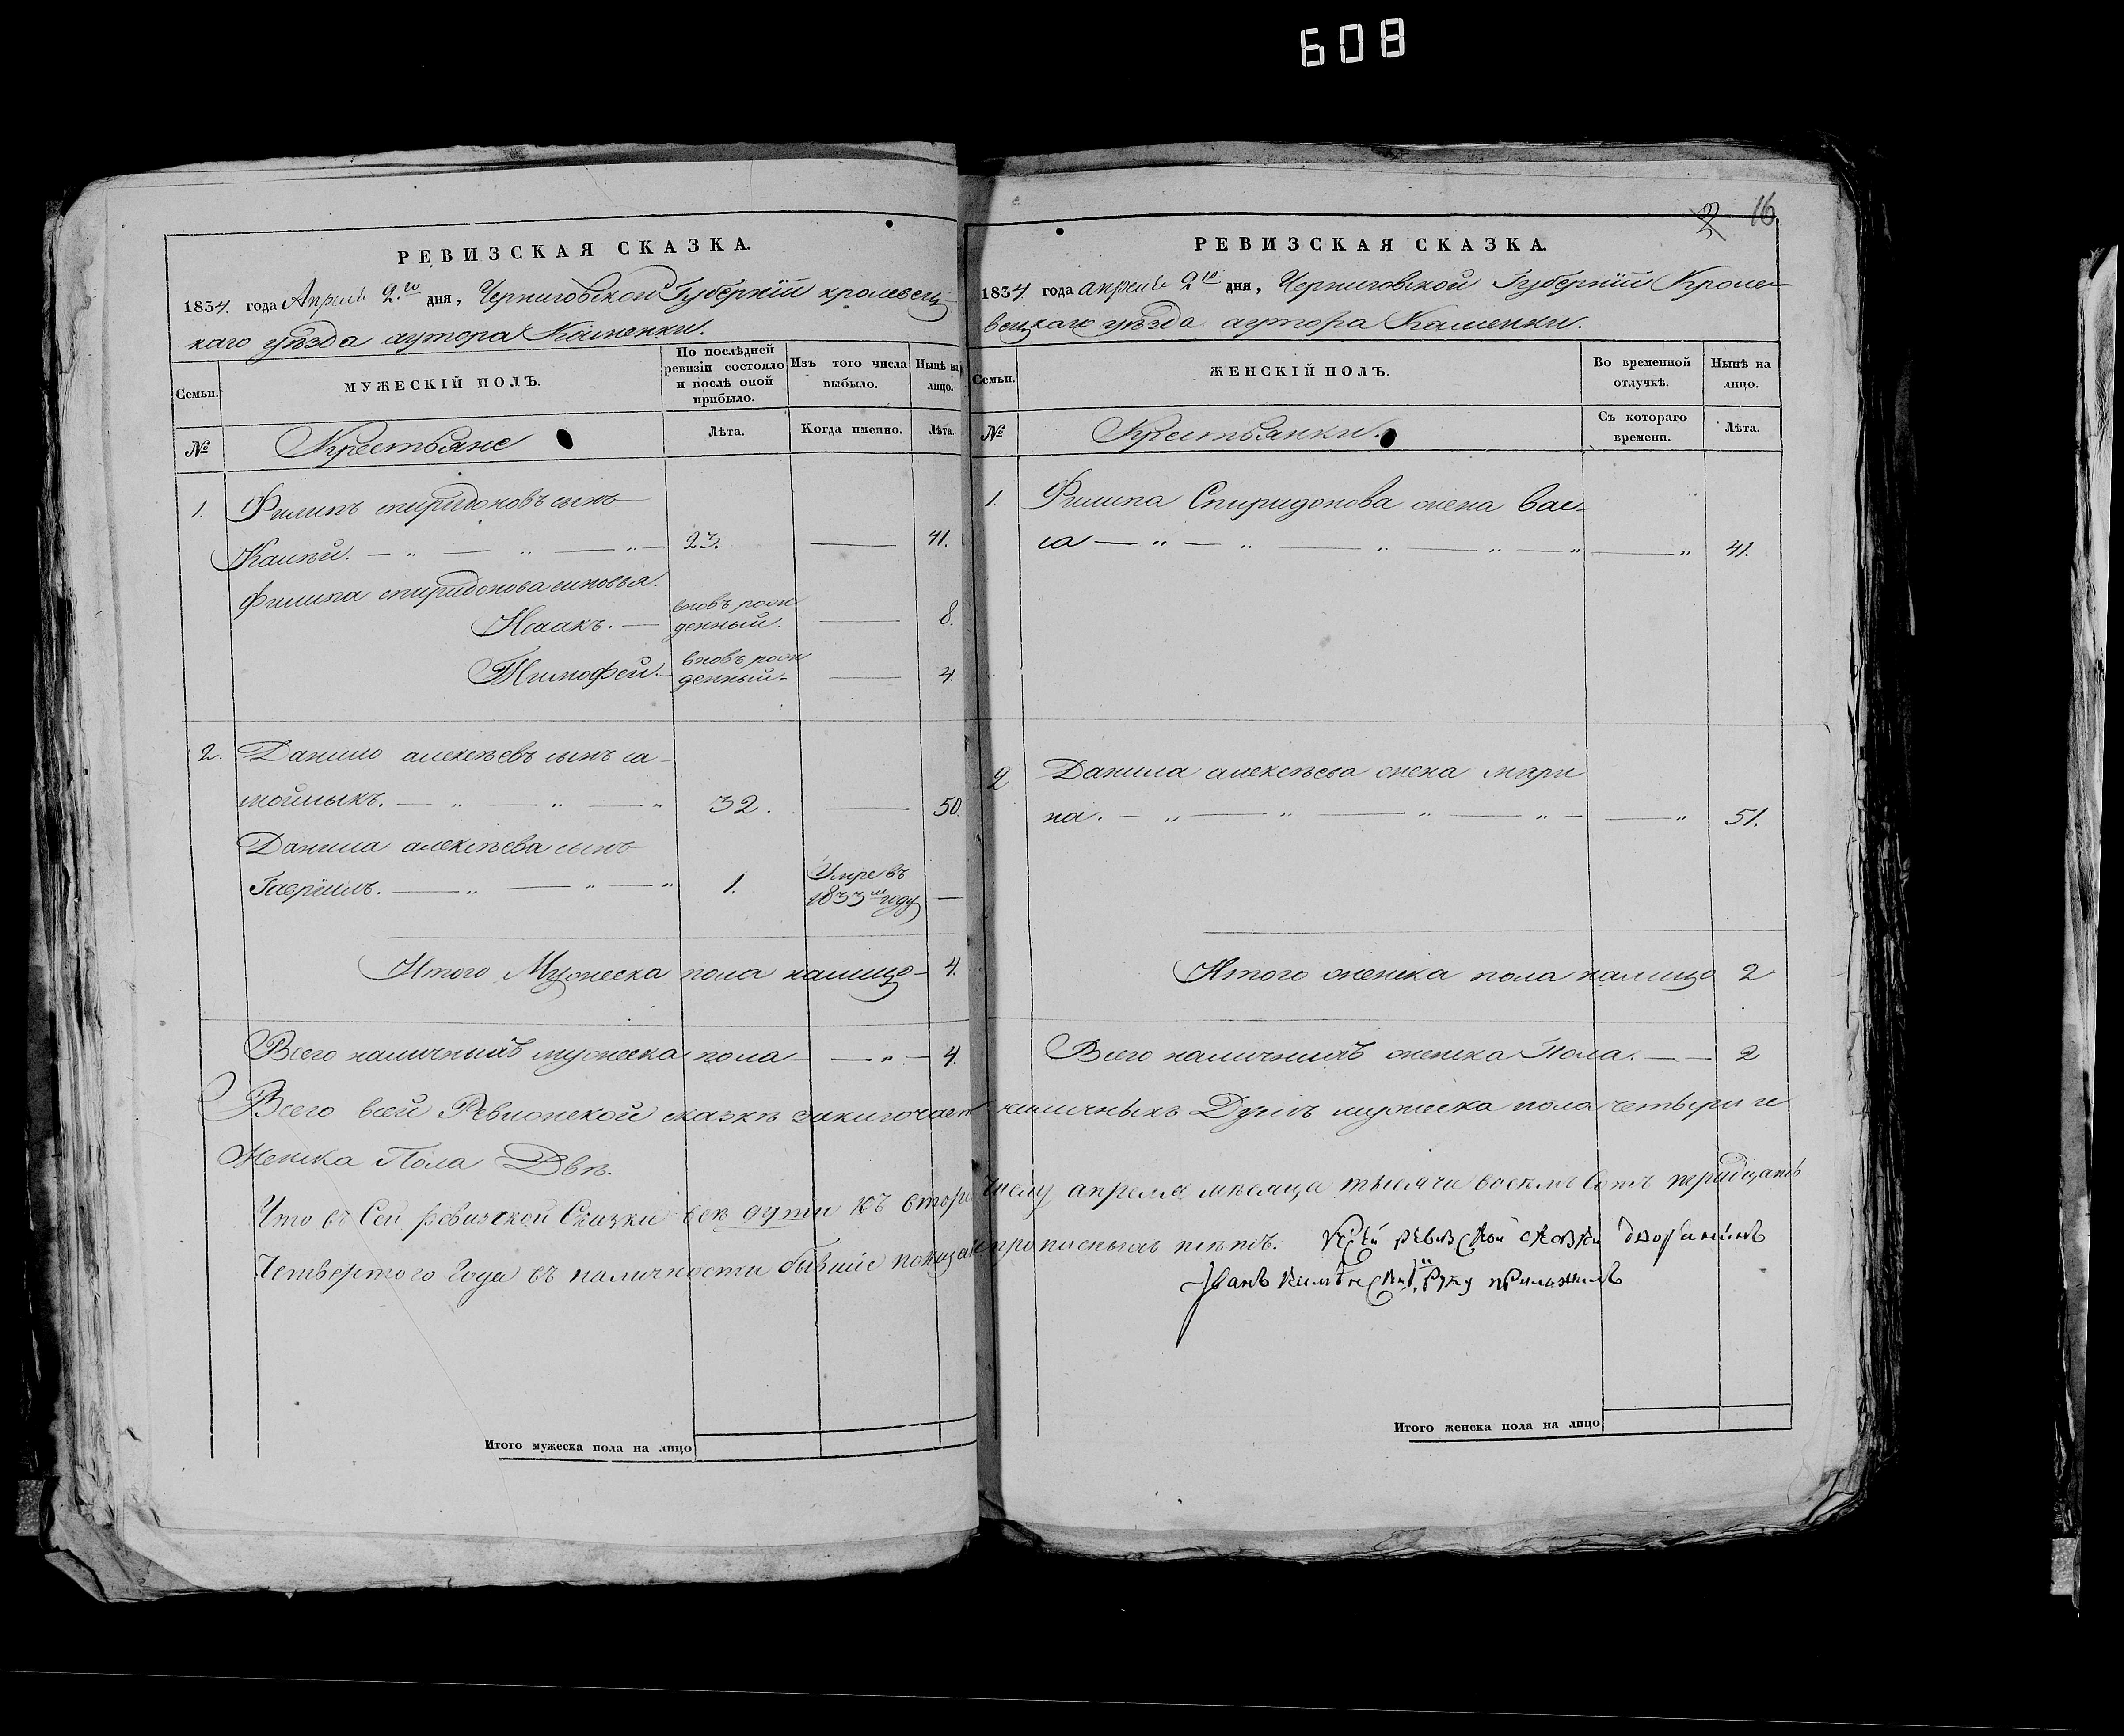 608
РЕВИЗСКАЯ СКАЗКА.
1834. года Апреля 2.го дня, Черниговской Губерніи кролевец
каго уѣзда хутора Каменки.
Семьи.
МУЖЕСКІЙ ПОЛЪ.
По послѣдней ревизіи состояло и послѣ оной прибыло.
Изъ того числа выбыло.
Нынѣ на лицо.
№
Крестьяне
Лѣта.
Когда именно.
Лѣта.
1. Филипъ спиридоновъ сынъ
23. 41.
Филипа спиридонова синовья.
Исаакъ. вновь рож
денный. 8.
Тимофей. вновь рож
денный. 4.
2. Данило алексѣевъ сынъ са
мойлыкъ. 32. 50.
Данила алексѣева сынъ
Гавріилъ. 1. Умре въ
1833м году —
Итого Мужеска пола налицо 4.
Всего наличныхъ мужеска пола 4.
Итого мужеска пола на лицо
2 16.
РЕВИЗСКАЯ СКАЗКА.
1834. года апреля 2го дня, Черниговской Губерніи Кроле-
вецкаго уѣзда хутора Каменки.
Семьи.
ЖЕНСКІЙ ПОЛЪ.
Во временной отлучкѣ.
Нынѣ на лицо.
№
Крестьянки.
Съ котораго времени.
Лѣта.
1. Филипа Спиридонова жена Вас-
са 41.
2 Данила алексѣева жена мари
на. 51.
Итого женска пола налицо 2
Всего наличныхъ женска Пола. 2
Всего всей Ревизской сказкѣ заключает наличныхъ Душъ мужеска пола четыри и
Женска Пола Двѣ.
Что въ Сей ревизской Сказки всѣ души къ второ числу апреля мѣсяца тысячи восемь Сотъ тридцать
Четвертого Года въ наличности бывшіе показан прописныхъ нѣтъ. К сей ревизской сказки дворанинъ
Іванъ руку приложилъ
Итого женска пола на лицо